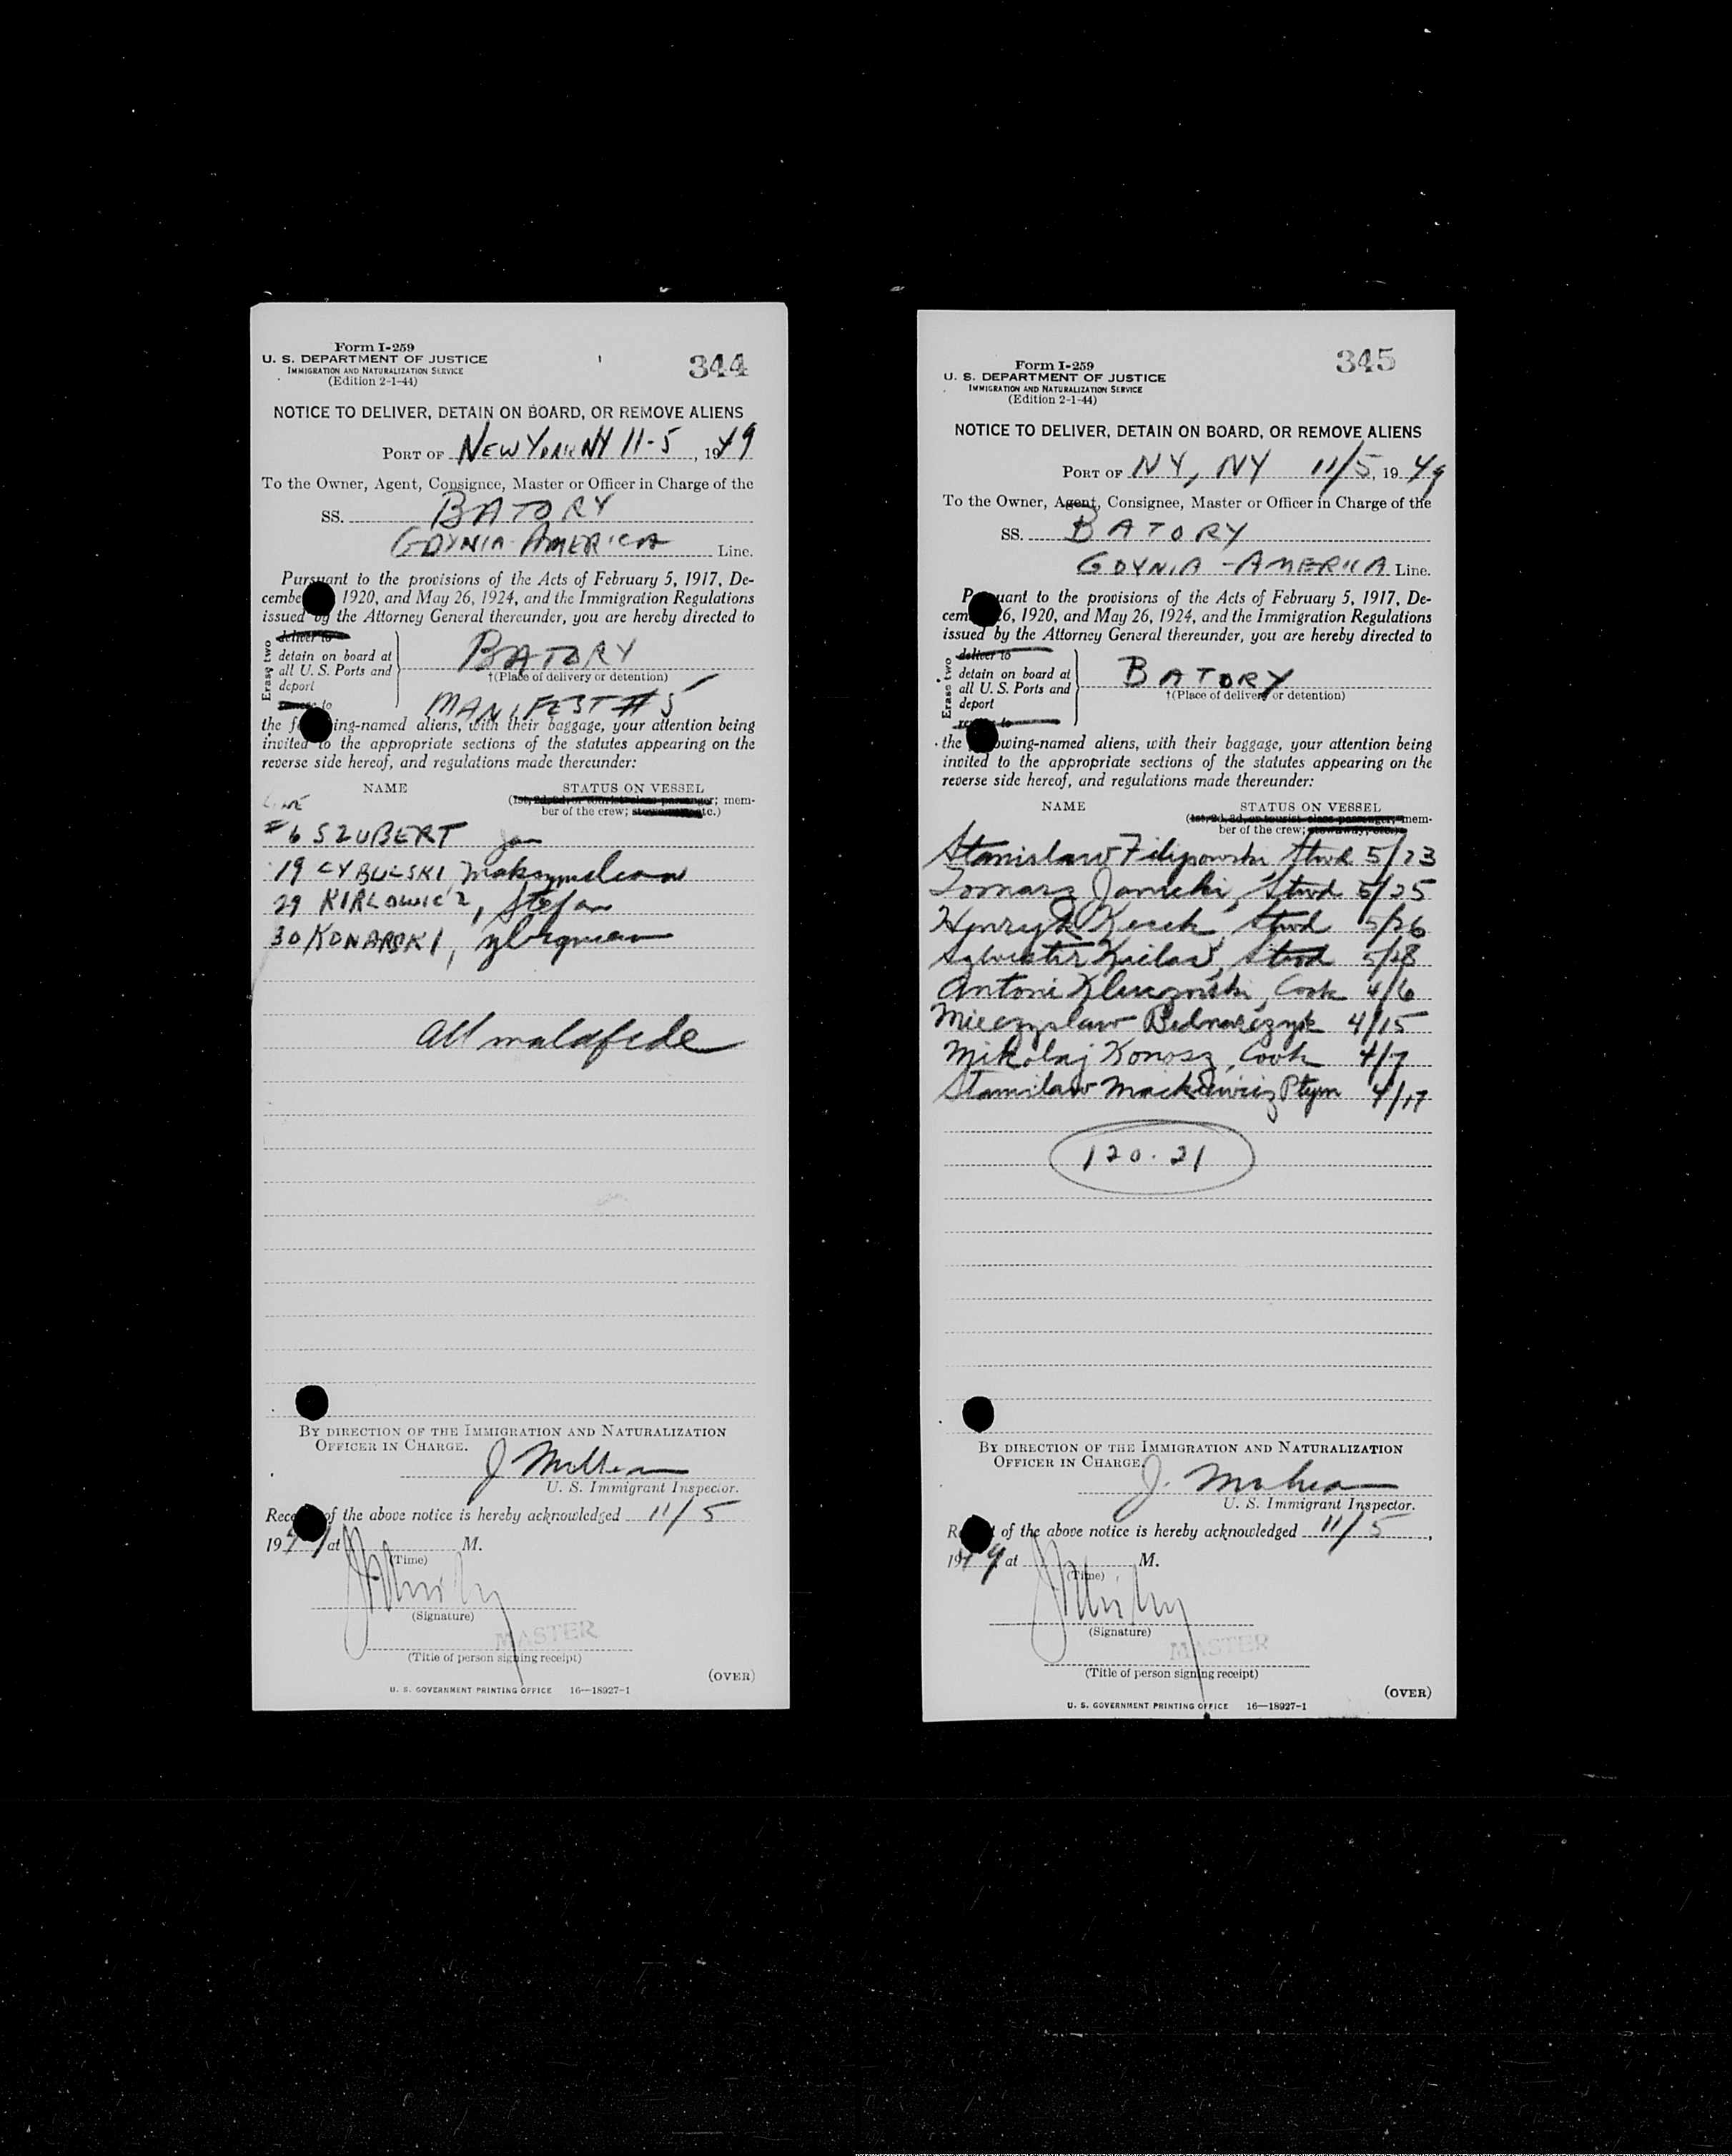 Form I-259
U. S. DEPARTMENT OF JUSTICE
IMMIGRATION AND NATURALIZATION SERVICE
(Edition 2-1-44)
344
NOTICE TO DELIVER, DETAIN ON BOARD, OR REMOVE ALIENS
PORT OF NEW YORK NY 11-5, 1949
To the Owner, Agent, Consignee, Master or Officer in Charge of the
SS. BATORY
GDYNIA-AMERICA Line.
Pursuant to the provisions of the Acts of February 5, 1917, De-
1920, and May 26, 1924, and the Immigration Regulations
issued by the Attorney General thereunder, you are hereby directed to
Erase two
deliver to
detain on board at
all U. S. Ports and
deport
to
BATORY
†(Place of delivery or detention)
MANIFEST #5
the ing-named aliens, with their baggage, your attention being
invited to the appropriate sections of the statutes appearing on the
reverse side hereof, and regulations made thereunder:
NAME
STATUS ON VESSEL
(1st, 2d, 3d, or tourist class passenger; mem-
ber of the crew; stowaway, etc.)
LINE
#6 SZUBERT Jan
19 CYBULSKI, Maksymilian
29 KIRLOWICZ, Stefan
30 KONARSKI,
All malafide
BY DIRECTION OF THE IMMIGRATION AND NATURALIZATION
OFFICER IN CHARGE.
J
U. S. Immigrant Inspector.
of the above notice is hereby acknowledged 11/5
19 at M.
(Time)
(Signature)
MASTER
(Title of person signing receipt)
(OVER)
U. S. GOVERNMENT PRINTING OFFICE 16—18927-1
Form I-259
U. S. DEPARTMENT OF JUSTICE
IMMIGRATION AND NATURALIZATION SERVICE
(Edition 2-1-44)
345
NOTICE TO DELIVER, DETAIN ON BOARD, OR REMOVE ALIENS
PORT OF NY, NY 11/5, 1949
To the Owner, Agent, Consignee, Master or Officer in Charge of the
SS. BATORY
GDYNIA-AMERICA Line.
to the provisions of the Acts of February 5, 1917, De-
6, 1920, and May 26, 1924, and the Immigration Regulations
issued by the Attorney General thereunder, you are hereby directed to
Erase two
deliver to
detain on board at
all U. S. Ports and
deport
BATORY
†(Place of delivery or detention)
the owing-named aliens, with their baggage, your attention being
invited to the appropriate sections of the statutes appearing on the
reverse side hereof, and regulations made thereunder:
NAME
STATUS ON VESSEL
(1st, 2d, 3d, or tourist class passenger; mem-
ber of the crew; stowaway, etc.)
Stanislaw Filipowski, Stwd 5/23
Tomasz Janicki, Stwd 5/25
Henryk Stwd 5/26
Sylwester Stwd 5/28
Antoni Cook 4/6
Mieczyslaw Bednarczyk 4/15
Mikolaj Konosz, Cook 4/7
Stanislaw Mackiewicz 4/17
120.21
BY DIRECTION OF THE IMMIGRATION AND NATURALIZATION
OFFICER IN CHARGE.
J.
U. S. Immigrant Inspector.
of the above notice is hereby acknowledged 11/5,
1949 at M.
(Time)
(Signature)
MASTER
(Title of person signing receipt)
(OVER)
U. S. GOVERNMENT PRINTING OFFICE 16—18927-1